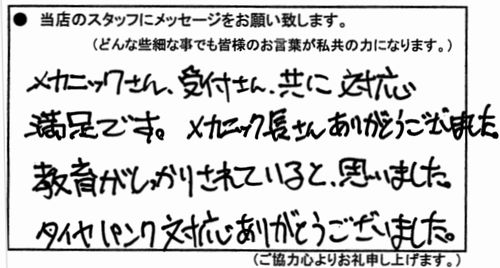 ● 当店のスタッフにメッセージをお願い致します。
（どんな些細な事でも皆様のお言葉が私共の力になります。）
メカニックさん、受付さん、共に 対応
満足です。メカニック長さんありがとうございました
教育がしっかりされていると、思いました。
タイヤパンク対応ありがとうございました。
（ご協力心よりお礼申し上げます。）